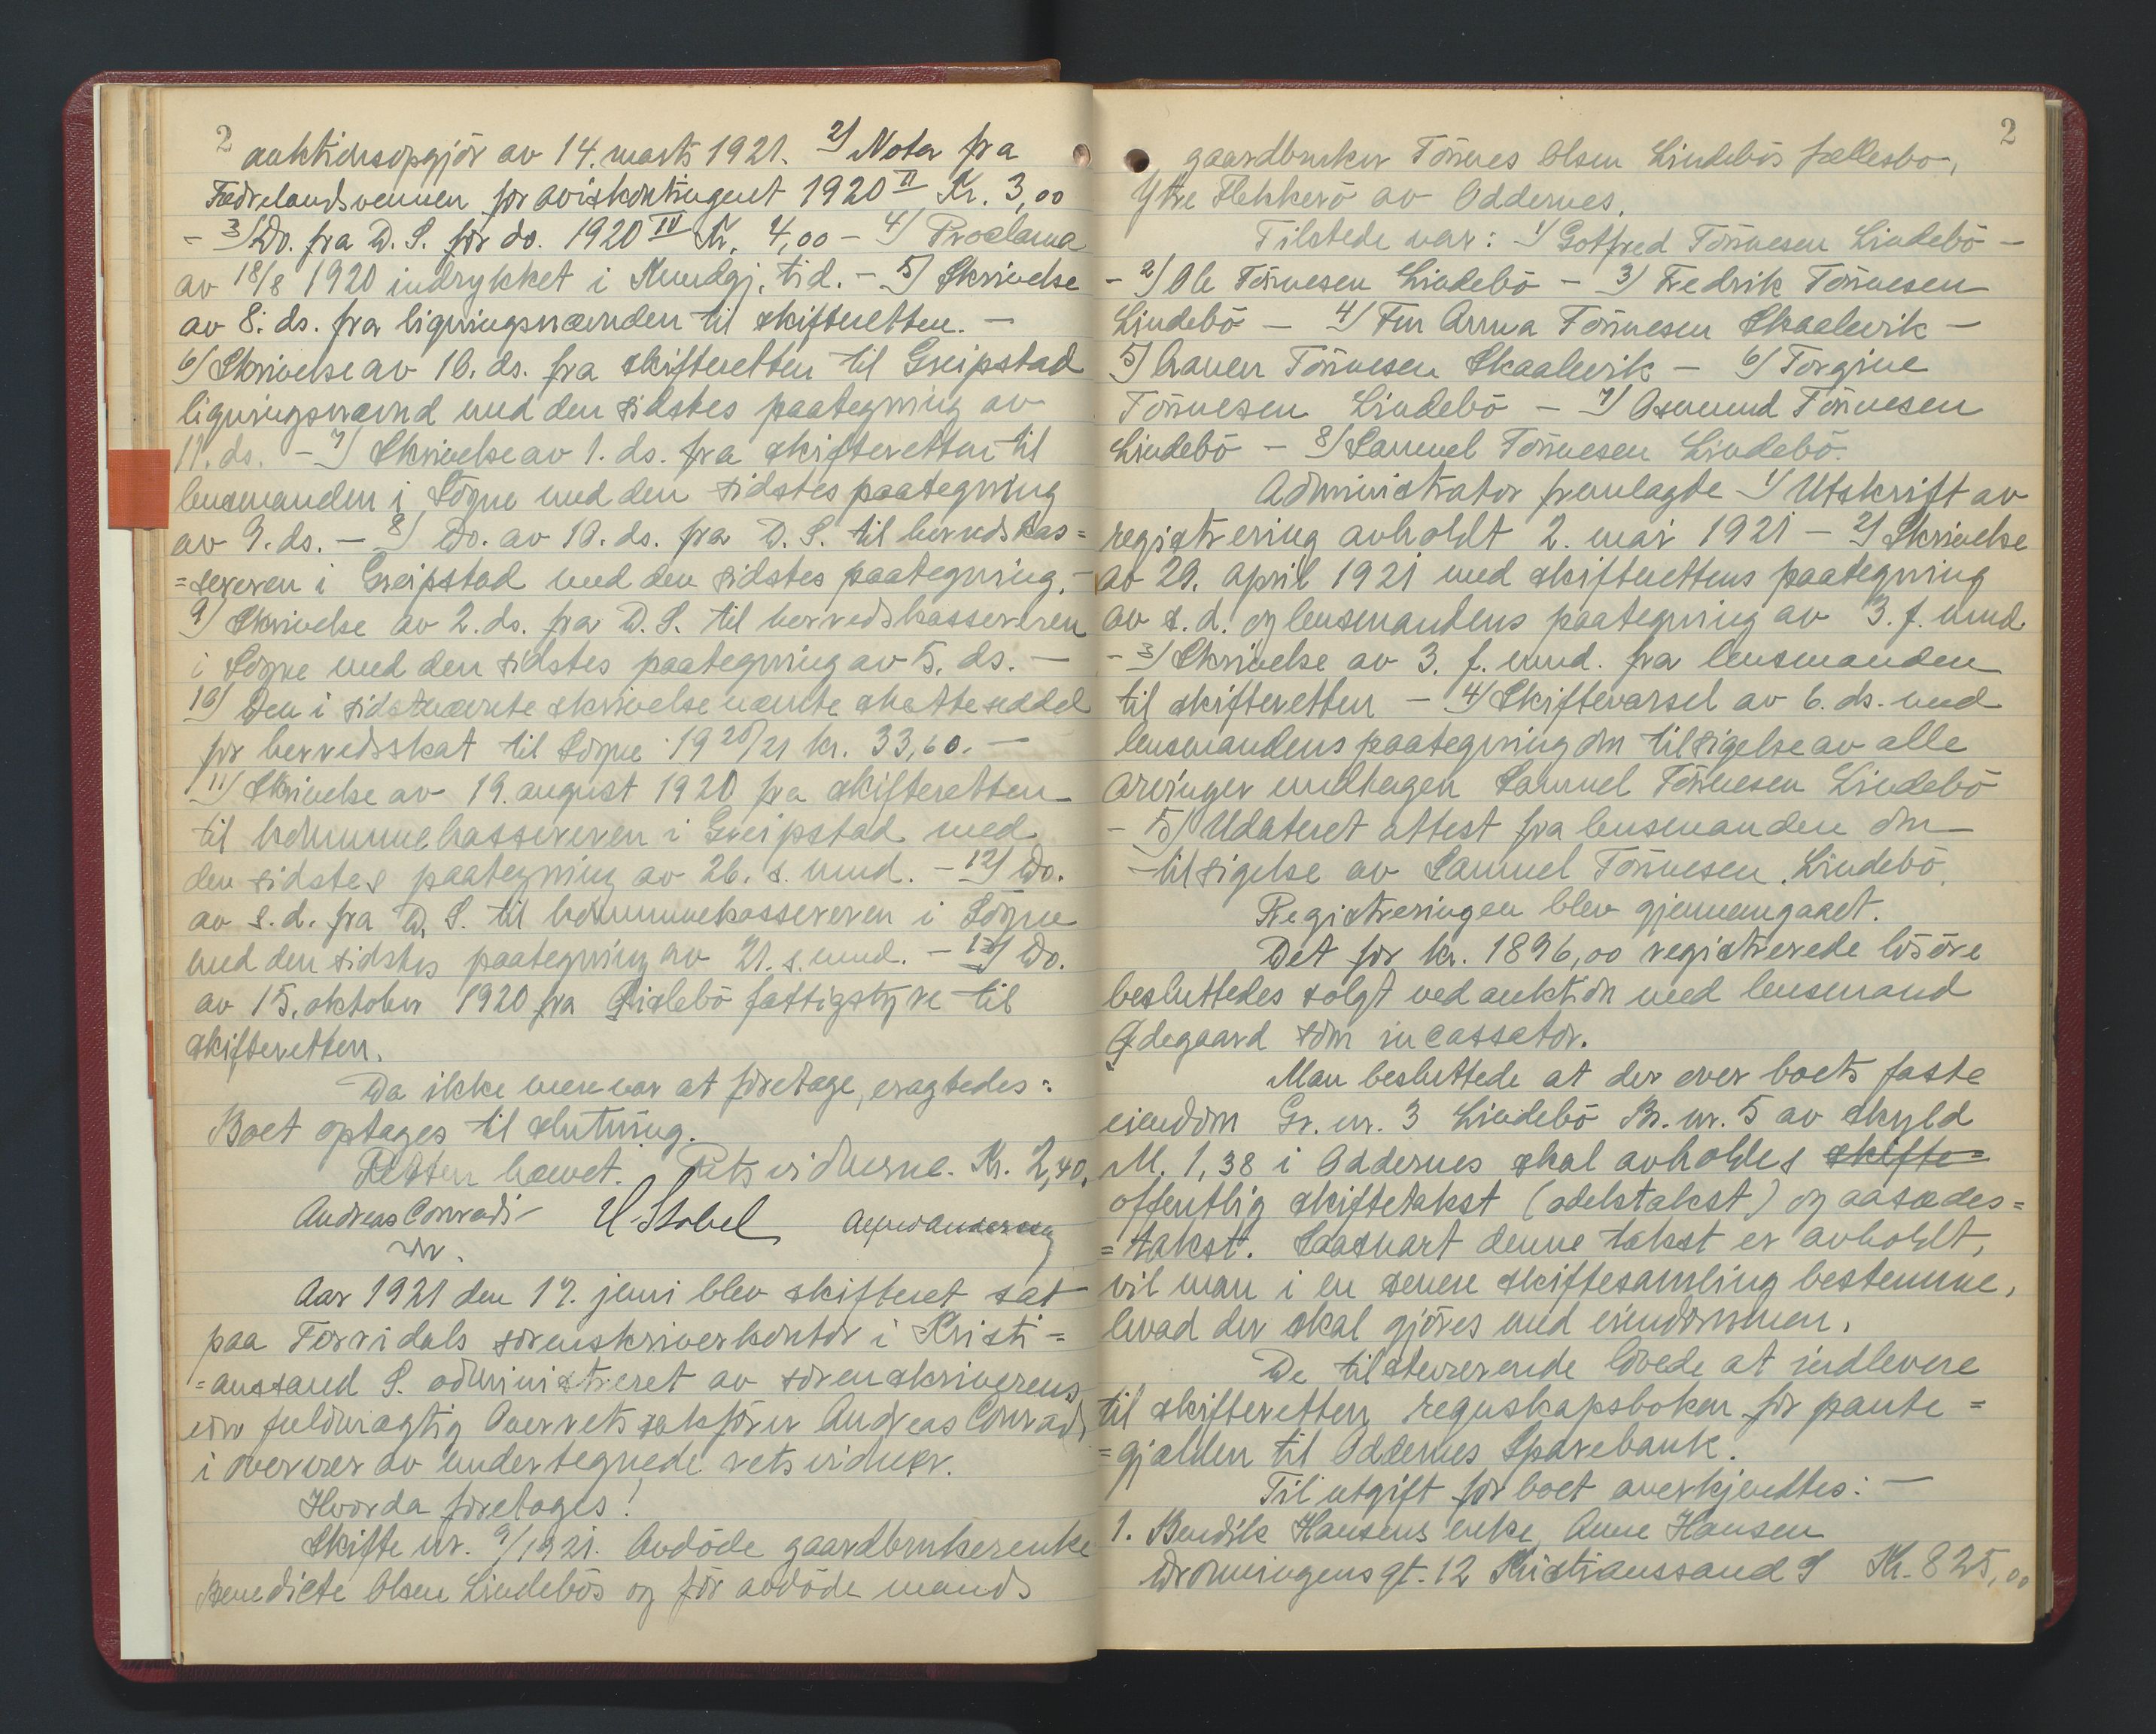 2
auktionsopgjör av 14. marts 1921. 2) Nota fra
Fædrelandsvennen for aviskontingent 1920 II Kr. 3,00
- 3) Do. fra D. S. for do. 1920 IV Kr. 4,00 - 4) Proclama
av 18/8 1920 indrykket i Kundgj. tid. - 5) Skrivelse
av 8. ds. fra ligningsnævnden til skifteretten. -
6) Skrivelse av 10. ds. fra skifteretten til Greipstad
ligningsnævnd med den sidstes paategning av
11. ds. - 7) Skrivelse av 1. ds. fra skifteretten til
lensmanden i Sögne med den sidstes paategning
av 9. ds. - 8) Do. av 10. ds. fra D. S. til herredskas=
=sereren i Greipstad med den sidstes paategning. -
9) Skrivelse av 2. ds. fra D. S. til herredskassereren
i Sögne med den sidstes paategning av 5. ds. -
10) Den i sidstnævnte skrivelse nævnte skatteseddel
for herredsskat til Sögne 1920/21 kr. 33,60. -
11) Skrivelse av 19. august 1920 fra skifteretten
til kommunekassereren i Greipstad med
den sidstes paategning av 26. s. mnd. - 12) Do.
av s. d. fra D. S. til kommunekassereren i Sögne
med den sidstes paategning av 21. s. mnd. - 13) Do.
av 15. oktober 1920 fra Gislebö fattigstyre til
skifteretten.
Da ikke mere var at foretage, eragtedes:
Boet optages til slutning.
Retten hævet. Retsvidnerne. Kr. 2,40.
Andreas Conradi H. Stabel
edr.
Aar 1921 den 17. juni blev skifteret sat
paa Torridals sorenskriverkontor i Kristi=
=anssand S. administreret av sorenskriverens
edv fuldmægtig Overretssakförer Andreas Conradi
i overvær av undertegnede retsvidner.
Hvorda foretoges!
Skifte nr. 9/1921. Avdöde gaardbrukerenke
Benedicte Olsen Lindebös og för avdöde mands
2
gaardbruker Tönnes Olsen Lindebös fællesbo,
Ytre Flekkerö av Oddernes.
Tilstede var: 1) Gotfred Tönnesen Lindebö -
- 2) Ole Tönnesen Lindebö - 3) Fredrik Tönnesen
Lindebö - 4) Fru Anna Tönnesen Skaalevik -
5) Hauen Tönnesen Skaalevik - 6) Torgine
Tönnesen Lindebö - 7) Osmund Tönnesen
Lindebö - 8) Samuel Tönnesen Lindebö.
Administrator fremlagte 1) Utskrift av
registrering avholdt 2. mai 1921 - 2) Skrivelse
av 29. april 1921 med skifterettens paategning
av s. d. og lensmandens paategning av 3. f. mnd.
- 3) Skrivelse av 3. f. mnd. fra lensmanden
til skifteretten - 4) Skiftevarsel av 6. ds. med
lensmandens paategning om tilsigelse av alle
arvinger undtagen Samuel Tönnesen Lindebö
- 5) Udateret attest fra lensmanden om
tilsigelse av Samuel Tönnesen Lindebö.
Registreringen blev gjennemgaaet.
Det for kr. 1896,00 registrerede lösöre
besluttedes solgt ved auktion med lensmand
Ødegaard som incassator.
Man besluttede at der over boets faste
eiendom Gr. nr. 3 Lindebö Br. nr. 5 av skyld
M. 1,38 i Oddernes skal avholdes skifte=
offentlig skiftetakst (odelstakst) og aasædes=
=takst. Saasnart denne takst er avholdt,
vil man i en senere skiftesamling bestemme,
hvad der skal gjöres med eiendommen.
De tilstedeværende lovede at indlevere
til skifteretten regnskapsboken for pante=
=gjælden til Oddernes Sparebank.
Til utgift for boet anerkjendtes: -
1. Bendik Hansens enke, Anne Hansen
Dronningens gt. 12 Kristianssand S Kr. 825,00